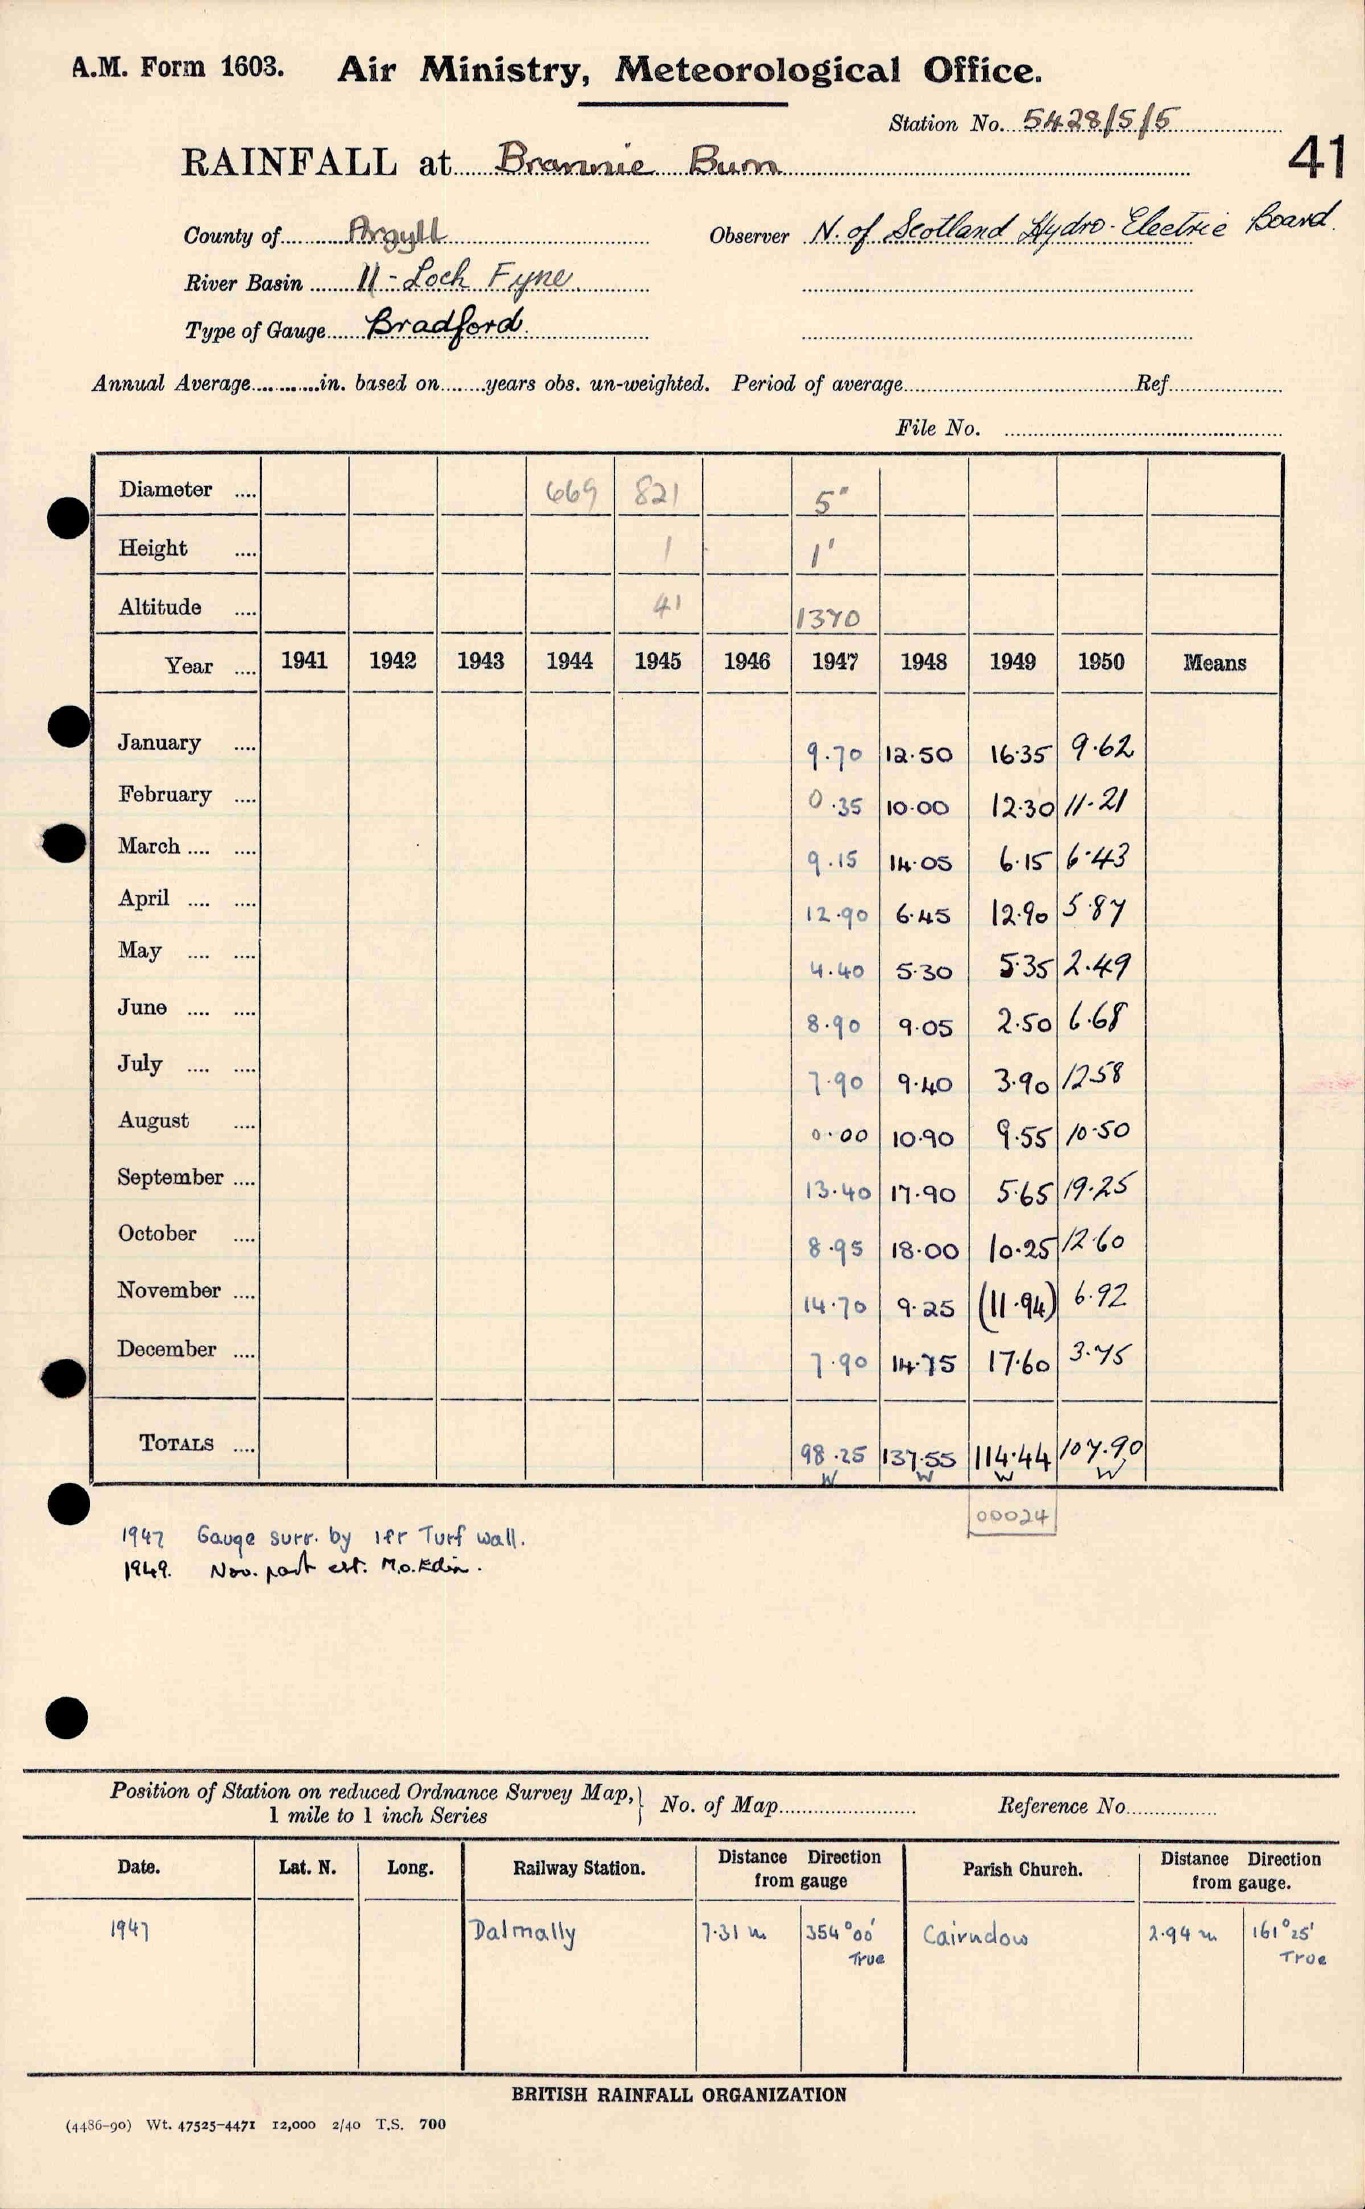 A.M. Form 1603. Air Ministry, Meteorological Office.
Station No. 5428/5/5
41
RAINFALL at Brannie Burn
County of Argyll Observer N. of Scotland Hydro-Electric Board.
River Basin 11 - Loch Fyne.
Type of Gauge Bradford.
Annual Average............in. based on........years obs. un-weighted. Period of average.................... Ref....................
File No. ....................
Diameter .... 669 821 5"
Height .... 1 1'
Altitude .... 41 1370
Year .... 1941 1942 1943 1944 1945 1946 1947 1948 1949 1950 Means
January .... 9.70 12.50 16.35 9.62
February .... 0.35 10.00 12.30 11.21
March .... .... 9.15 14.05 6.15 6.43
April .... .... 12.90 6.45 12.90 5.87
May .... .... 4.40 5.30 5.35 2.49
June .... .... 8.90 9.05 2.50 6.68
July .... .... 7.90 9.40 3.90 12.58
August .... 0.00 10.90 9.55 10.50
September .... 13.40 17.90 5.65 19.25
October .... 8.95 18.00 10.25 12.60
November .... 14.70 9.25 (11.94) 6.92
December .... 7.90 14.75 17.60 3.75
TOTALS .... 98.25 137.55 114.44 107.90
W W W W
00024
1947 Gauge surr. by 1ft Turf wall.
1949. Nov. part est. M.O. Edin.
Position of Station on reduced Ordnance Survey Map,
1 mile to 1 inch Series } No. of Map.................... Reference No....................
Date. Lat. N. Long. Railway Station. Distance Direction from gauge Parish Church. Distance Direction from gauge.
1947 Dalmally 7.31 m 354°00' True Cairndow 2.94 m 161°25' True
BRITISH RAINFALL ORGANIZATION
(4486-90) Wt. 47525-4471 12,000 2/40 T.S. 700